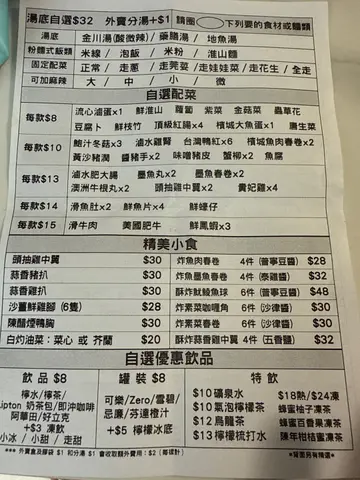 湯底自選$32 外賣分湯+$1 請圈 下列要的食材或麵類
湯底 金川湯(酸微辣) / 藥膳湯 / 地魚湯
粉麵式飯類 米線 / 泡飯 / 米粉 / 淮山麵
固定配菜 正常 / 走蔥 / 走芫荽 / 走娃娃菜 / 走花生 / 全走
可加麻辣 大 / 中 / 小 / 微
自選配菜
每款$8 流心滷蛋x1 鮮淮山 蘿蔔 紫菜 金菇菜 蟲草花
豆腐卜 鮮枝竹 頂級紅腸x4 檳城大魚蛋x1 唐生菜
每款$10 鮑汁冬菇x3 滷水雞腎 台灣鴨紅x6 檳城魚肉春卷x2
黃沙豬潤 醬豬手x2 味噌豬皮 蟹柳x2 魚腐
每款$13 滷水肥大腸 墨魚丸x2 墨魚春卷x2
澳洲牛根丸x2 頭抽雞中翼x2 貴妃雞x4
每款$14 滑魚肚x2 鮮魚片x4 鮮蠔仔
每款$15 滑牛肉 美國肥牛 鮮鳳蝦x3
精美小食
頭抽雞中翼 $30 炸魚肉春卷 4件 (普寧豆醬) $28
蒜香豬扒 $30 炸魚墨魚春卷 4件 (泰雞醬) $32
蒜香雞扒 $30 酥炸魷鰻魚球 6件 (普寧豆醬) $48
沙薑鮮雞腳 (6隻) $28 炸素菜咖喱角 6件 (沙律醬) $30
陳醋煙鴨胸 $30 炸素菜春卷 6件 (沙律醬) $30
白灼油菜：菜心 或 芥蘭 $20 酥炸頭抽雞中翼 4件 (五香鹽) $32
自選優惠飲品
飲品 $8 罐裝 $8 特飲
檸水/檸茶/
Lipton 奶茶包/即沖咖啡
阿華田/好立克
+$3 凍飲
小冰 / 小甜 / 走甜
可樂/Zero/雪碧/
忌廉/芬達橙汁
+$5 檸檬冰底
$10 礦泉水 $18熱/$24凍
$10 氣泡檸檬茶 蜂蜜柚子凍茶
$12 烏龍茶 蜂蜜百香果凍茶
$13 檸檬梳打水 陳年柑桔蜜凍茶
*** 外賣盒及膠袋 $1 和分湯 $1 會收取額外費用：$2 (每樣計) *背面另有精選*